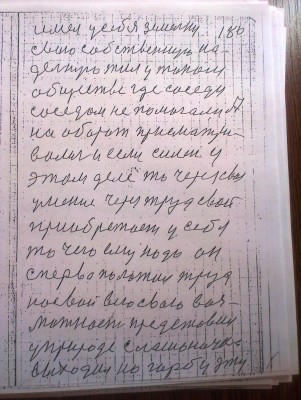 имел у себя земельку 186
свою собственную на-
дельную жил у таком
обществе где соседу
соседом не помогали
на оборот присматри-
вались и если силен у
этом деле то через свое
умение через труд свой
приобретает у себя
то чего ему надо он
сперва положил труд
на свою воз-
можность представил
у природе
выходил на горбу эту